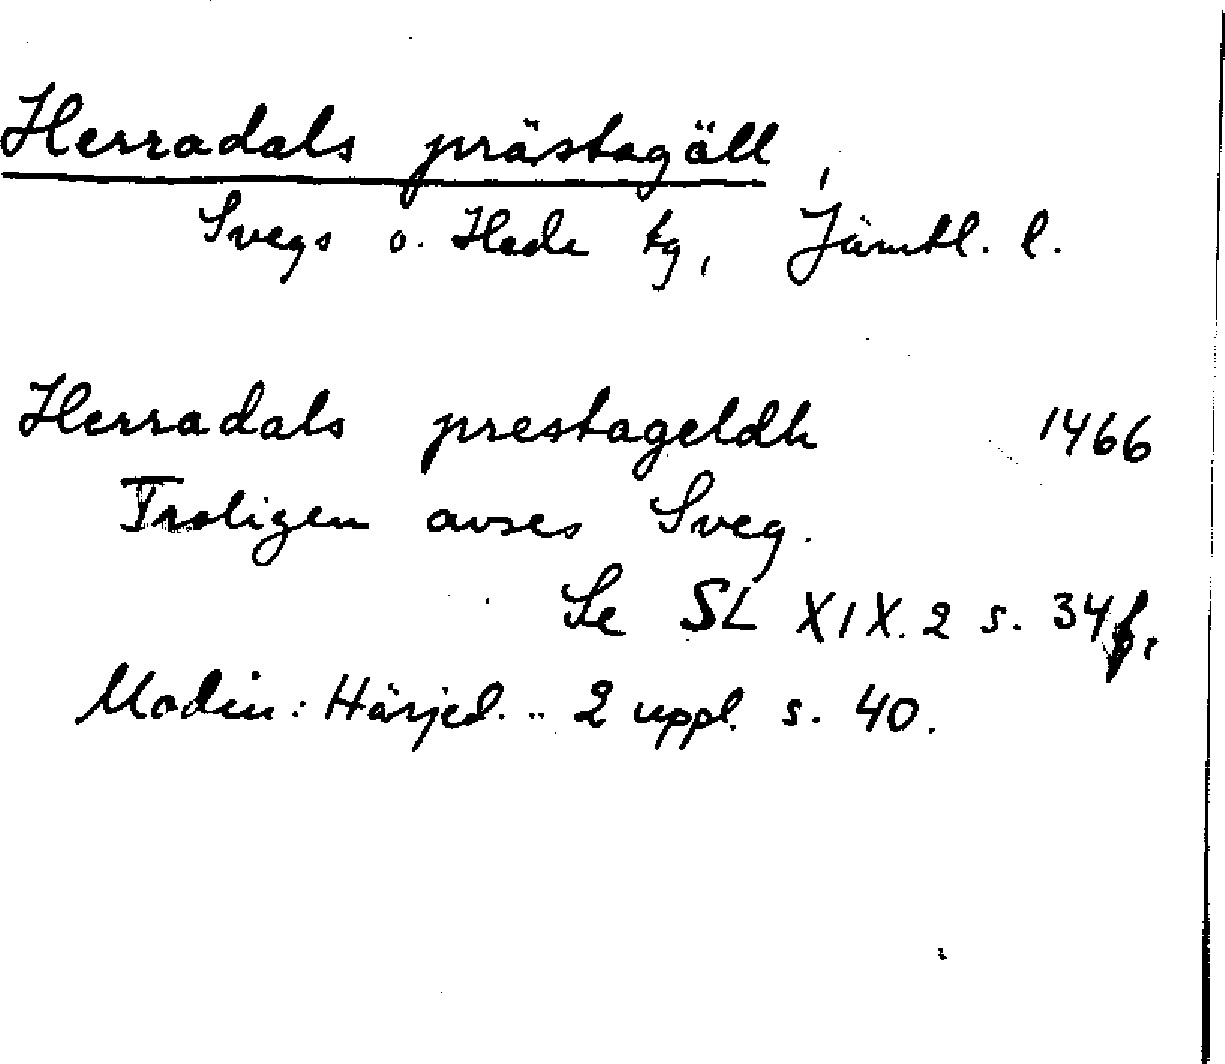 Herradals prästagäll,
Svegs o. Hede tg, Jämtl. l.
Herradals prestageldh 1466
Troligen avses Sveg.
Se SL XIX. 2 s. 34 f.
Modin: Härjed. .. 2 uppl. s. 40.